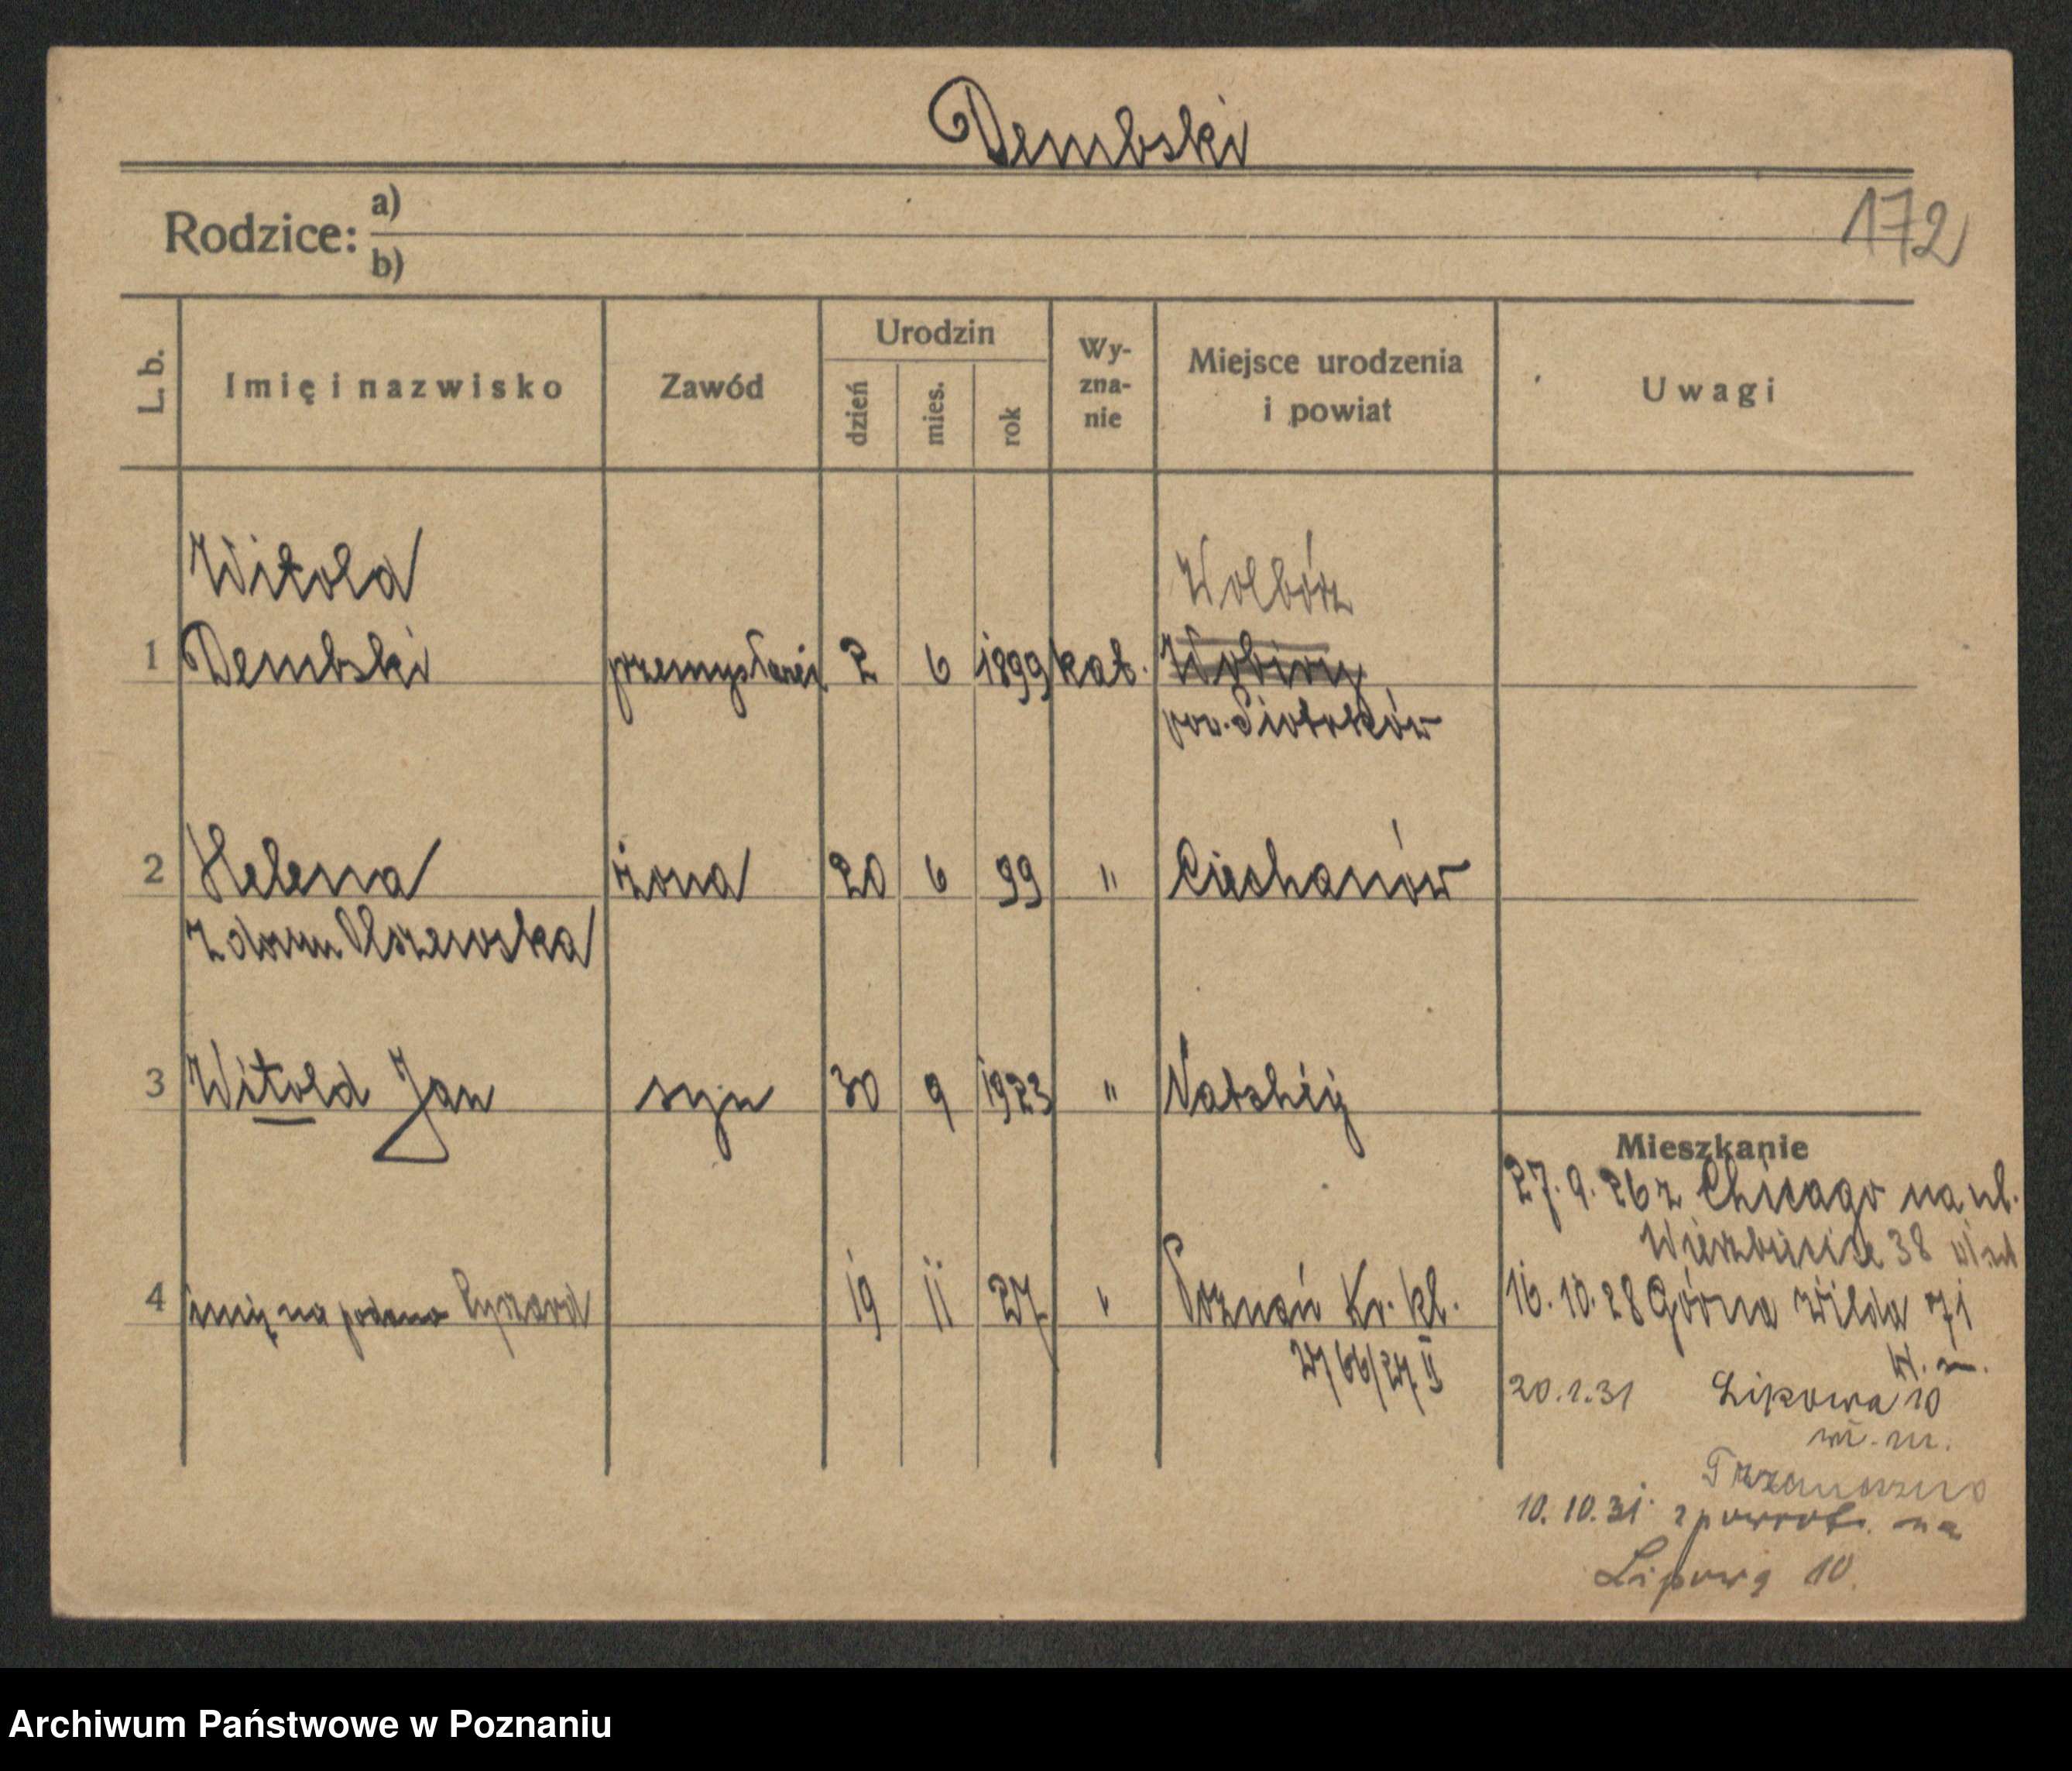 Dembski
172
Rodzice: a)
b)
L. b. Imię i nazwisko Zawód Urodzin dzień mies. rok Wyznanie Miejsce urodzenia i powiat Uwagi
Witold Wolbórz
1 Dembski 2 6 1899 kat.
pow. Piotrków
2 Helena żona 20 6 99 " Ciechanów
z domu Olszewska
3 Witold Jan syn 30 9 1923 "
Mieszkanie
27. 9. 26 z Chicago na ul.
Wierzbięcice 38
4 imię na podano Ryszard 19 11 27 " Poznań Kr. kl. 16. 10. 28 Górna Wilda 71
2766/27 II
20.1.31 Lipowa 10
10. 10. 31 z powrot. na
Lipową 10.
Archiwum Państwowe w Poznaniu